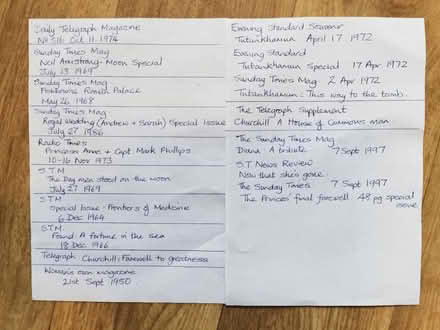 Daily Telegraph Magazine
No 516 Oct 11. 1974
Sunday Times Mag
Neil Armstrong - Moon Special
July 13 1969
Sunday Times Mag
Fishbourne Roman Palace
May 26 1968
Sunday Times Mag
Royal Wedding (Andrew + Sarah) Special Issue
July 27 1986
Radio Times
Princess Anne + Capt. Mark Phillips
10-16 Nov 1973
S.T.M
The Day men stood on the moon
July 27 1969
S.T.M.
Special Issue: Frontiers of Medicine
6 Dec 1964
S.T.M.
Found: A fortune in the sea
18 Dec 1966
Telegraph Churchill: Farewell to greatness
Woman's own magazine
21st Sept 1950
Evening Standard Souvenir
Tutankhamun April 17 1972
Evening Standard
Tutankhamun Special 17 Apr 1972
Sunday Times Mag 2 Apr 1972
Tutankhamun: This way to the tomb.
The Telegraph Supplement
Churchill A House of Commons man
The Sunday Times Mag
Diana A tribute 7 Sept 1997
S.T News Review
Now that she's gone
The Sunday Times 7 Sept 1997
The Princes' final farewell 48 pg special
issue